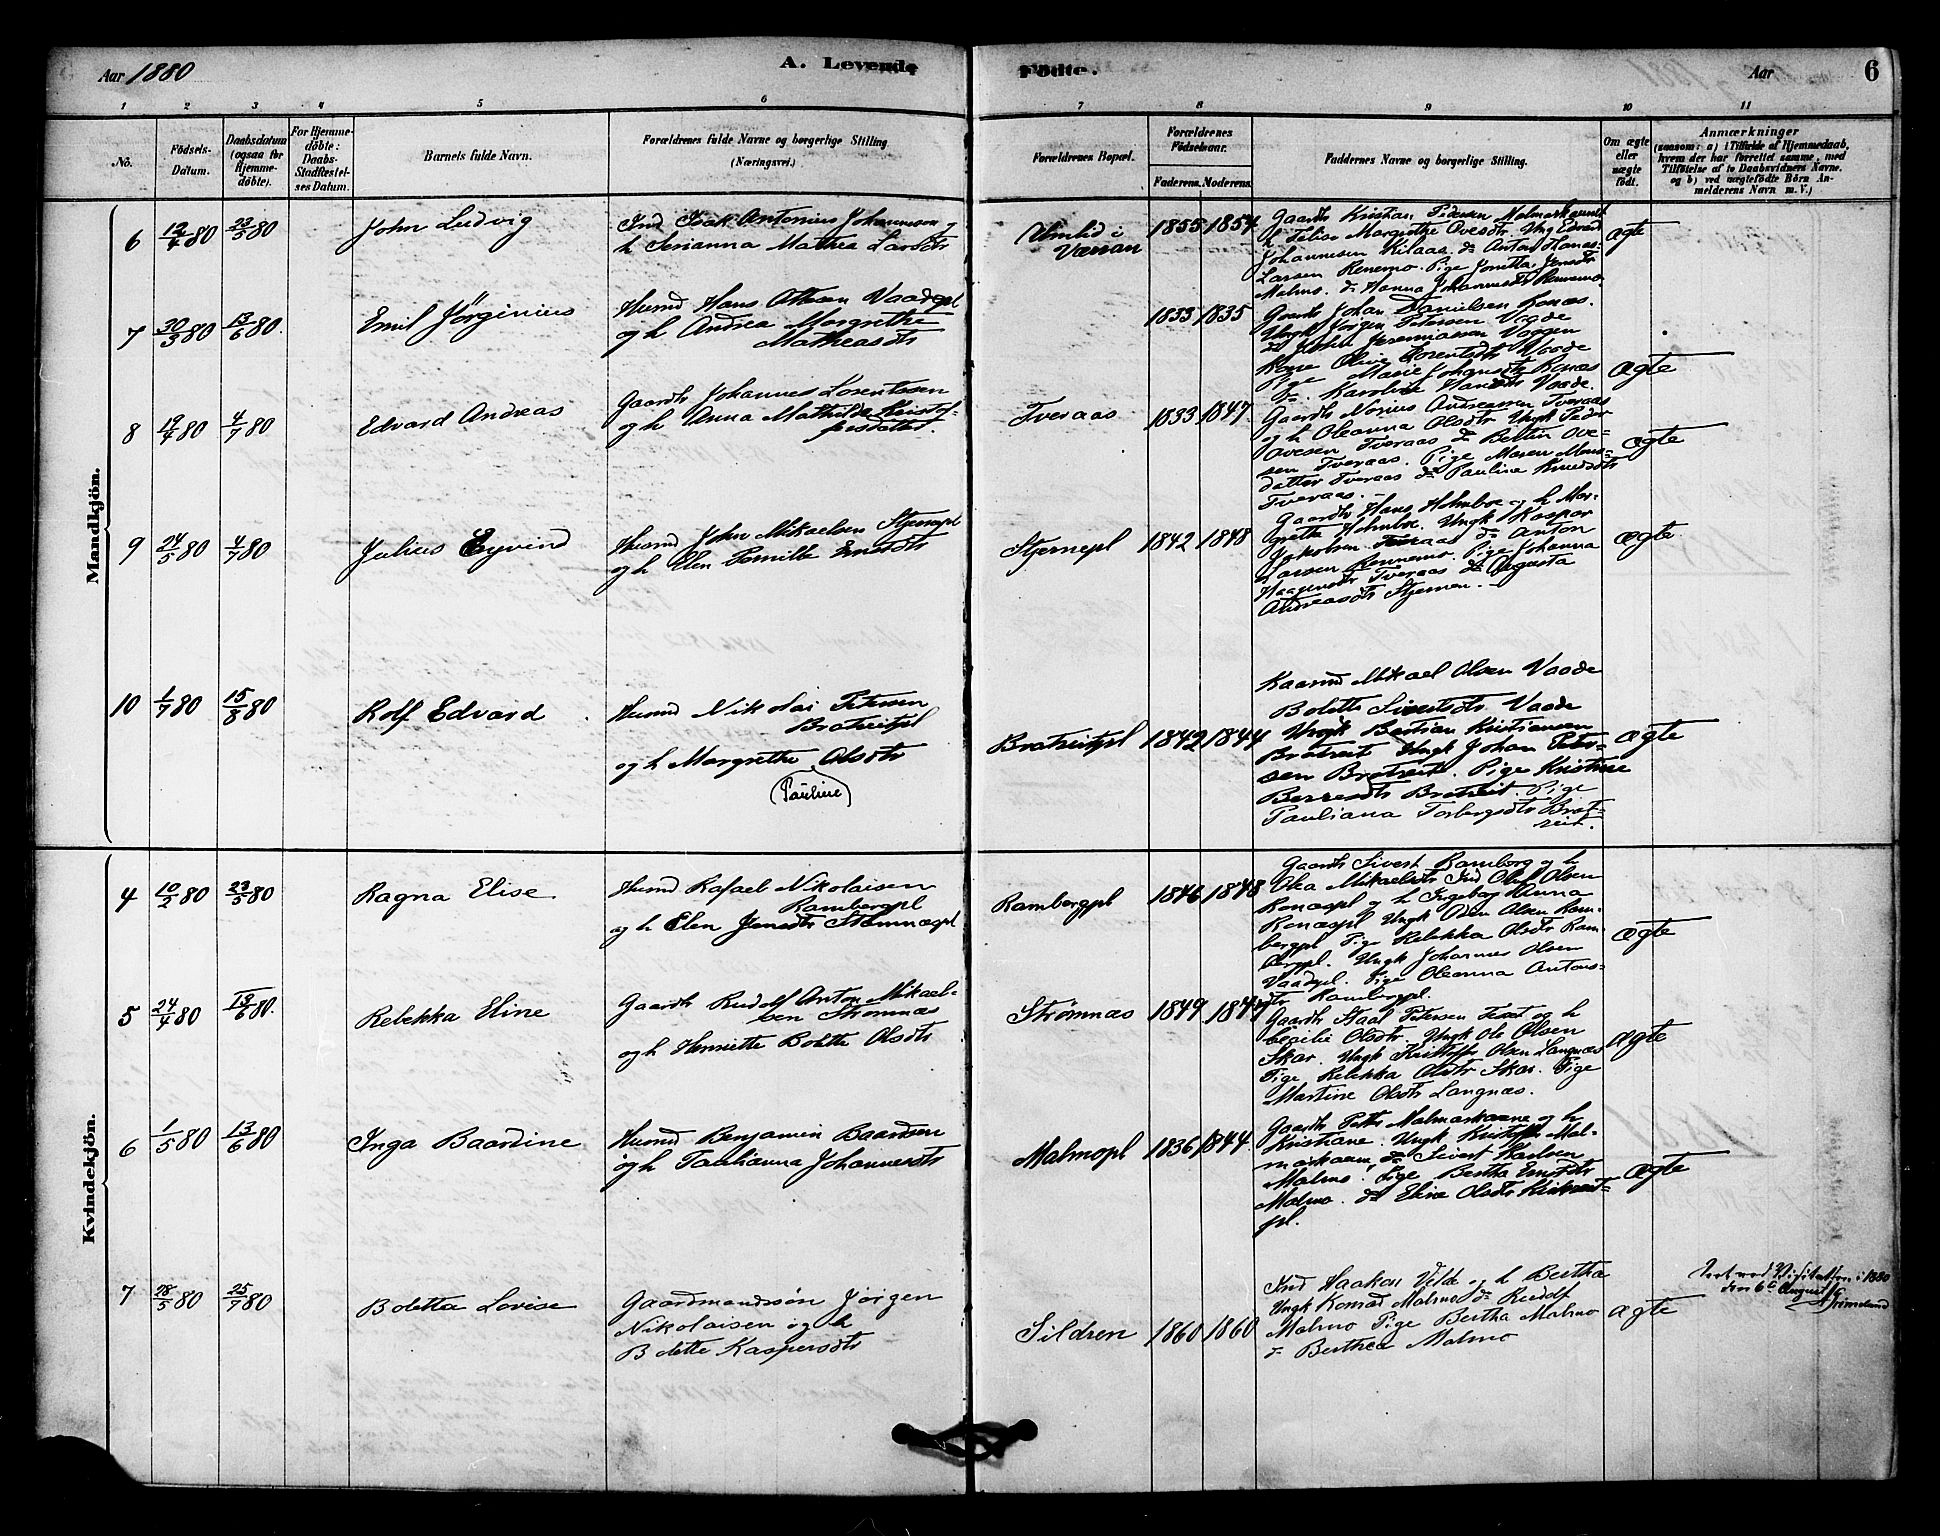 Aar 1880
A. Levende
Födte.
Aar
6
1 2 3 4 5 6 7 8 9 10 11
No.
Födsels-
Datum.
Daabsdatum
(ogsaa for
Hjemme-
döbte).
For Hjemme-
döbte:
Daabs-
Stadfæstel-
ses Datum.
Barnets fulde Navn.
Forældrenes fulde Navne og borgerlige Stilling
(Næringsvei.)
Forældrenes Bopæl.
Forældrenes
Födselsaar.
Faderens. Moderens.
Faddernes Navne og borgerlige Stilling.
Om ægte
eller
uægte
födt.
Anmærkninger
(saasom: a) i Tilfælde af Hjemmedaab,
hvem der har forrettet samme, med
Tilföielse af to Daabsvidners Navne.
og b) ved uægtefödte Börn An-
melderens Navn m. V.)
Mandkjön.
6
12/4 80
23/5 80
John Ludvig
Ind Isak Antonius Johannesen og
h Serianna Mathea Larsdtr
Umlid i
Værran
1855 1854
Gaardb Kristian Pedersen Malmarkaunet
h Felise Margrethe Ovesdtr Ung Edvard
Johannesen Kilaas do Anton
Larsen Rennemo. Pige Jonetta Jensdtr
Malmo. do Hanna Johannesdtr Rennemo.
ægte
7
30/3 80
13/6 80.
Emil Jørginius
Husmd Hans Otesen Vaadepl
og h Andrea Margrethe
Matheasdtr
1833 1835
Gaardb Johan Danielsen Ronæs.
Ungk Jørgen Petersen Vaade
do John Jeremiassen Vaggen
Kone Olive Lorentsdtr Vaade
Pige Marie Johansdtr Ronæs
do. Karoline Hansdtr Vaade.
ægte
8
19/4 80
4/7 80
Edvard Andreas
Gaardb Johannes Lorentsen
og h Anna Mathilde Kristof-
fersdatter.
Tveraas
1833 1847
Gaardb Norius Andreassen Tveraas
og h Oleanna Olsdtr Ungk Peder
Ovesen Tveraas do Bettin Ove-
sen Tveraas. Pige Maren Mons-
datter Tveraas do Paulina Knudsdtr
Tveraas.
ægte
9
24/5 80
4/7 80
Julius Eyvind
Husmd John Mikaelsen Stjernepl
og h Elen Pernille Ernstdtr
Stjernepl
1842 1848
Gaardb Hans Holmboe og h Mar-
grethe Holmboe. Ungk Kaspar
Jakobsen Tveraas do Anton
Larsen Rennemo. Pige Johanna
Haagensdtr Tveraas do Augusta
Andreasdtr Stjernen.
ægte
10
1/7 80
15/8 80
Rolf Edvard
Husmd Nikolai Petersen
Bratreitpl
og h Margrethe Olsdtr
(Pauline)
Bratreitpl
1842 1844
Kaarmd Mikael Olsen Vaade
Bolette Sivertsdtr Vaade
Ungk Bastian Kristiansen
Bratreit Ungk Johan Peter-
sen Bratreit. Pige Kristine
Berresdtr Bratreit. Pige
Pauliana Torbergsdtr Brat-
reit.
ægte
Kvindekjön.
4
10/2 80
23/5 80
Ragna Elise
Husmd Rafael Nikolaisen
Rambergpl
og h Elen Jensdtr Strømnæspl
Rambergpl
1846 1848
Gaardb Sivert Ramberg og h
Olea Mikaelsdtr Ind Oluf Olsen
Ronæspl og h Ingeborg Anna
Ronæspl Ungk Oden Olsen Ram-
bergpl Pige Rebekka Olsdtr Ram-
bergpl. Ungk Johannes Olsen
Vaadpl. Pige Oleanna Antons-
dtr Rambergpl.
ægte
5
24/4 80
13/6 80.
Rebekka Eline
Gaardb Rudolf Anton Mikael-
sen Strømnæs
og h Henriette Bolette Olsdtr
Strømnæs
1849
Gaardb Staal Petersen Teset og h
Cecilie Olsdtr. Ungk Ole Olsen
Skar. Ungk Kristoffer Olsen Langnæs
Pige Rebekka Olsdtr Skar. Pige
Martine Olsdtr Langnæs.
ægte
6
1/5 80
13/6 80
Inga Baardine
Husmd Benjamin Baardsen
og h Paulianna Johannesdtr
Malmopl
1836 1844
Gaardb Peter Malmarkaune og h
Kristiane. Ungk Kristoffer Mal-
markaun, do Sivert Karlsen
Malmo. Pige Bertha Ernstdtr
Malmo. do Eline Olsdtr
pl.
ægte
7
28/5 80
25/7 80
Boletta Lovise
Gaardmandssøn Jørgen
Nikolaisen og h
Bolette Kaspersdtr
Sildren
1860 1860
Ind Haakon Velde og h Bertha
Ungk Konrad Malmo do Rudolf
Malmo Pige Bertha Malmo
do Berthea Malmo
ægte
ved Visitatsen i 1880
den 6te August